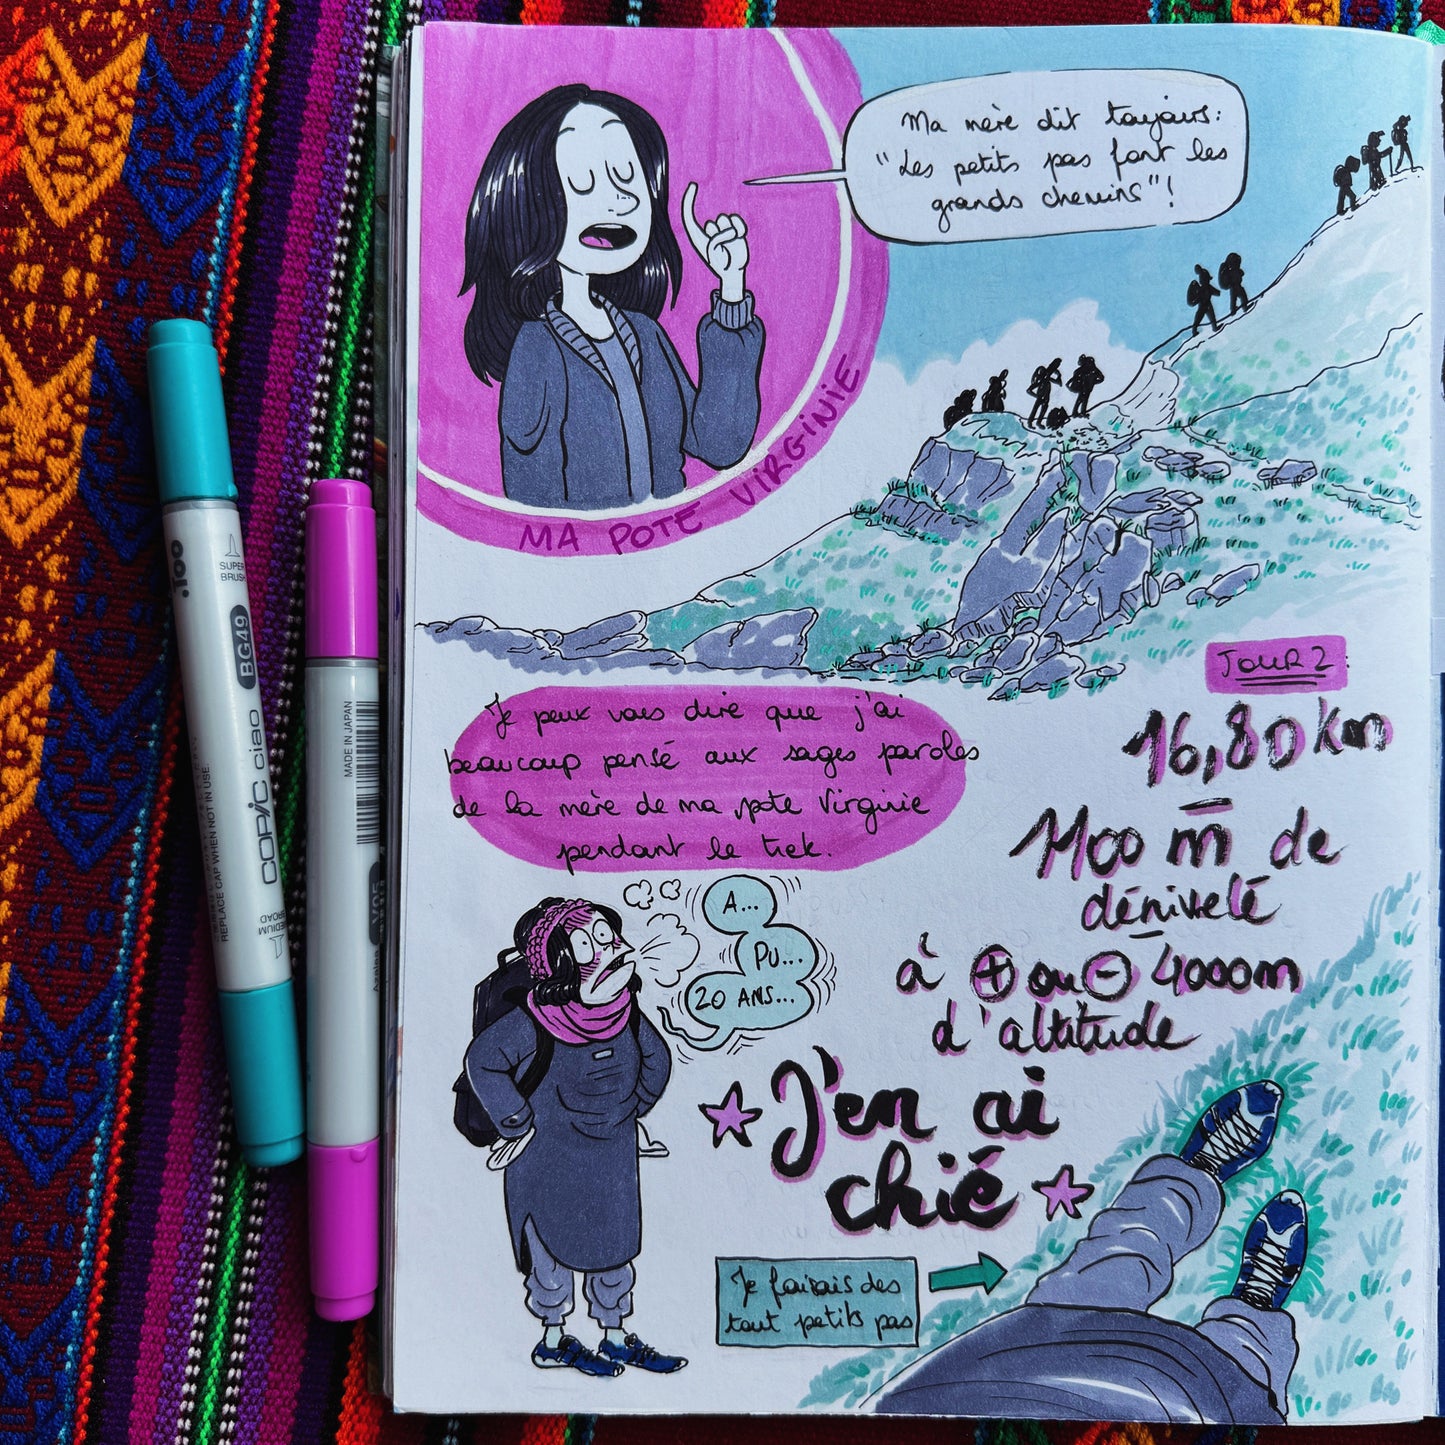 Ma mère dit toujours:
"Les petits pas font les
grands chemins"!
MA POTE VIRGINIE
JOUR 2:
16,80 km
1400 m de
dénivelé
à + ou - 4000m
d'altitude
Je peux vous dire que j'ai
beaucoup pensé aux sages paroles
de la mère de ma pote Virginie
pendant le trek.
A...
PU...
20 ANS...
J'en ai
chié
Je faisais des
tout petits pas
.Too
SUPER
BRUSH
BG49
COPIC ciao
REPLACE CAP WHEN NOT IN USE.
MEDIUM
BROAD
MADE IN JAPAN